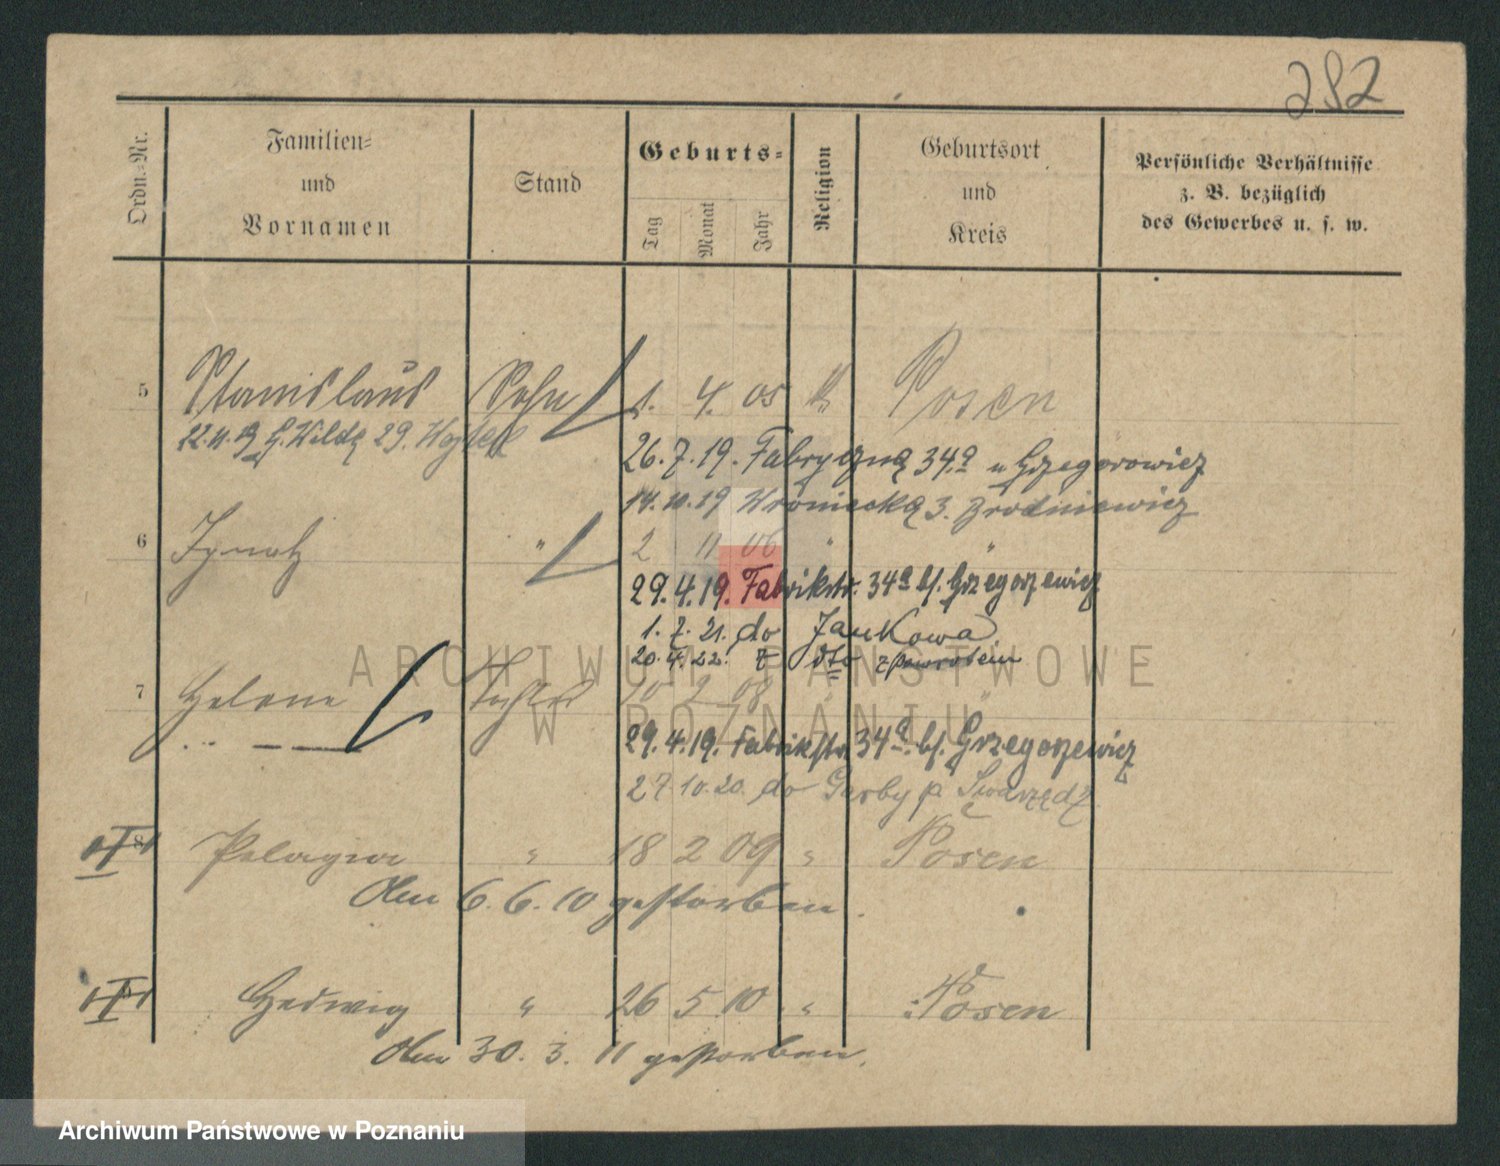 282
Ordn.-Nr.
Familien-
und
Vornamen
Stand
Geburts-
Tag
Monat
Jahr
Religion
Geburtsort
und
Kreis
Persönliche Verhältnisse
z. B. bezüglich
des Gewerbes u. s. w.
5 Stanislaus Sohn 1. 4. 05 k Posen
22.11.19 G. Wilda 29.
26.7.19. Fabryczna 34a u Grzegorowicz
14.10.19 Wroniecka 3.
6 Ignatz " 2 11 06 " "
29.4.19. Fabrikstr. 34a bf. Grzegorzewicz
1.7.21. do Jankowa
20.4.22. z dto z powrotem
7 Helene Tochter 10 2 08 " "
29.4.19. Fabrikstr. 34a bf. Grzegorzewicz
27.10.20. do Garby p Swarzędz
8 Pelagia " 18 2 09 " Posen
Am 6.6.10 gestorben.
Hedwig " 26 5 10 " Posen
Am 30. 3. 11 gestorben.
ARCHIWUM PAŃSTWOWE
W POZNANIU
Archiwum Państwowe w Poznaniu